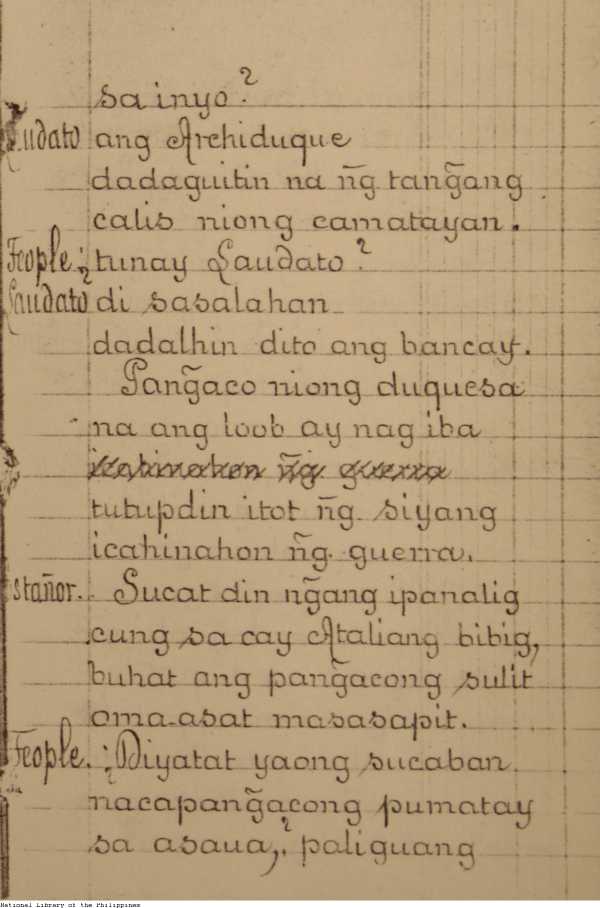 sa inyo?
Laudato ang Archiduque
dadaguitin na ñg tang̃ang
calis niong camatayan.
People. ¿tunay Laudato?
Laudato di sasalahan
dadalhin dito ang bancay.
Pang̃aco niong duquesa
na ang loob ay nag iba
icahinahon ñg guerra
tutupdin itot ñg siyang
icahinahon ñg guerra.
stañor. Sucat din ng̃ang ipanalig
cung sa cay Ataliang bibig,
buhat ang pang̃acong sulit
oma-asat masasapit.
People. ¿Diyatat yaong sucaban
nacapang̃acong pumatay
sa asaua,? paliguang
National Library of the Philippines